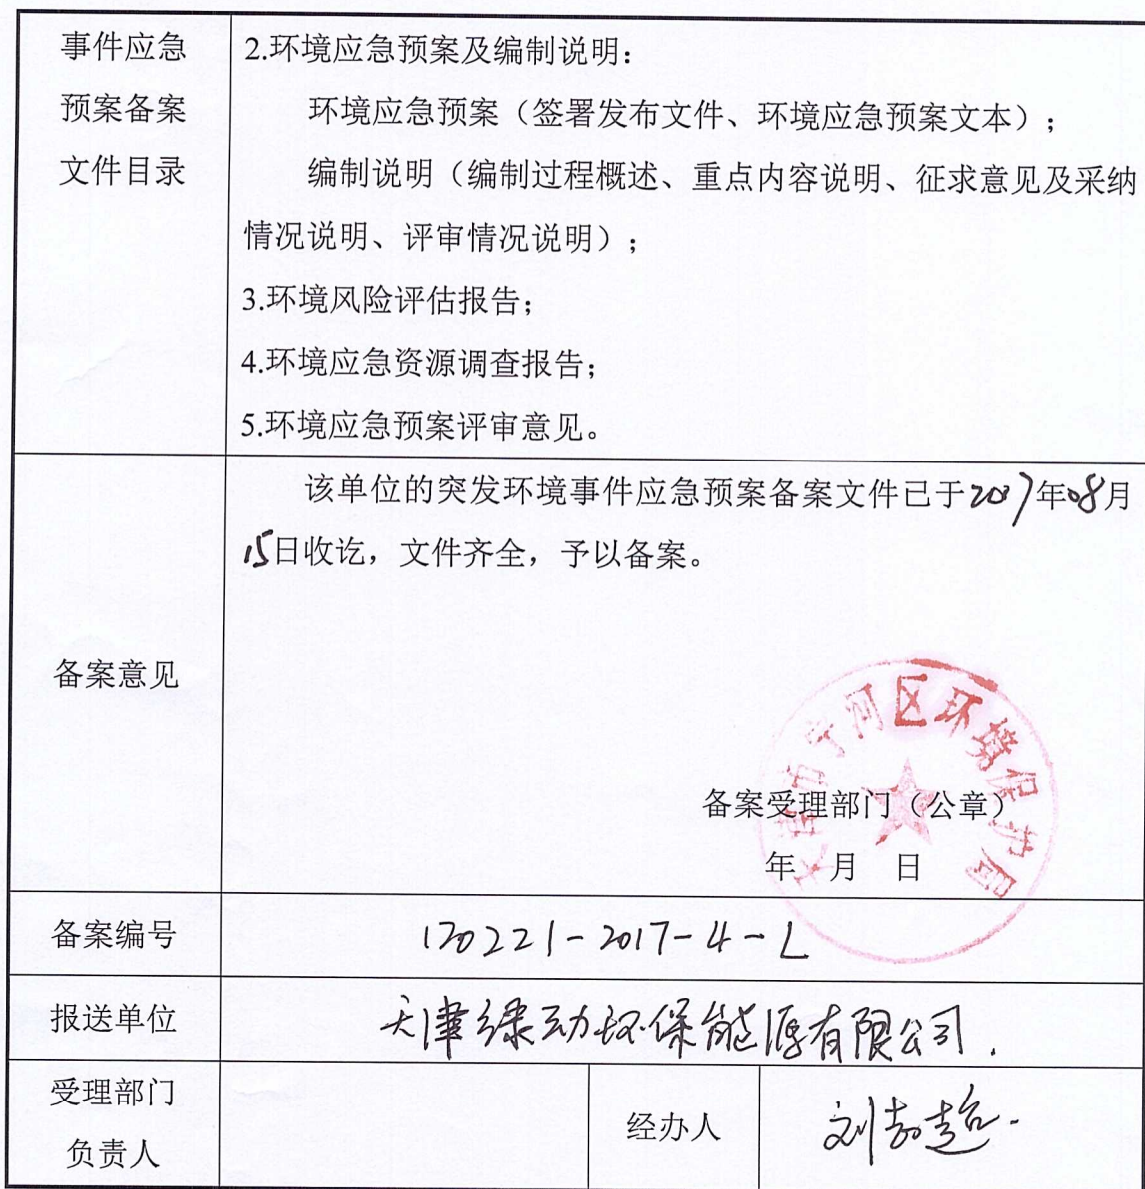 事件应急
预案备案
文件目录
2.环境应急预案及编制说明：
环境应急预案（签署发布文件、环境应急预案文本）；
编制说明（编制过程概述、重点内容说明、征求意见及采纳
情况说明、评审情况说明）；
3.环境风险评估报告；
4.环境应急资源调查报告；
5.环境应急预案评审意见。
备案意见
该单位的突发环境事件应急预案备案文件已于2017年08月
15日收讫，文件齐全，予以备案。
天津市宁河区环境保护局
备案受理部门（公章）
年 月 日
备案编号
120221-2017-4-L
报送单位
天津绿动环保能源有限公司.
受理部门
负责人
经办人